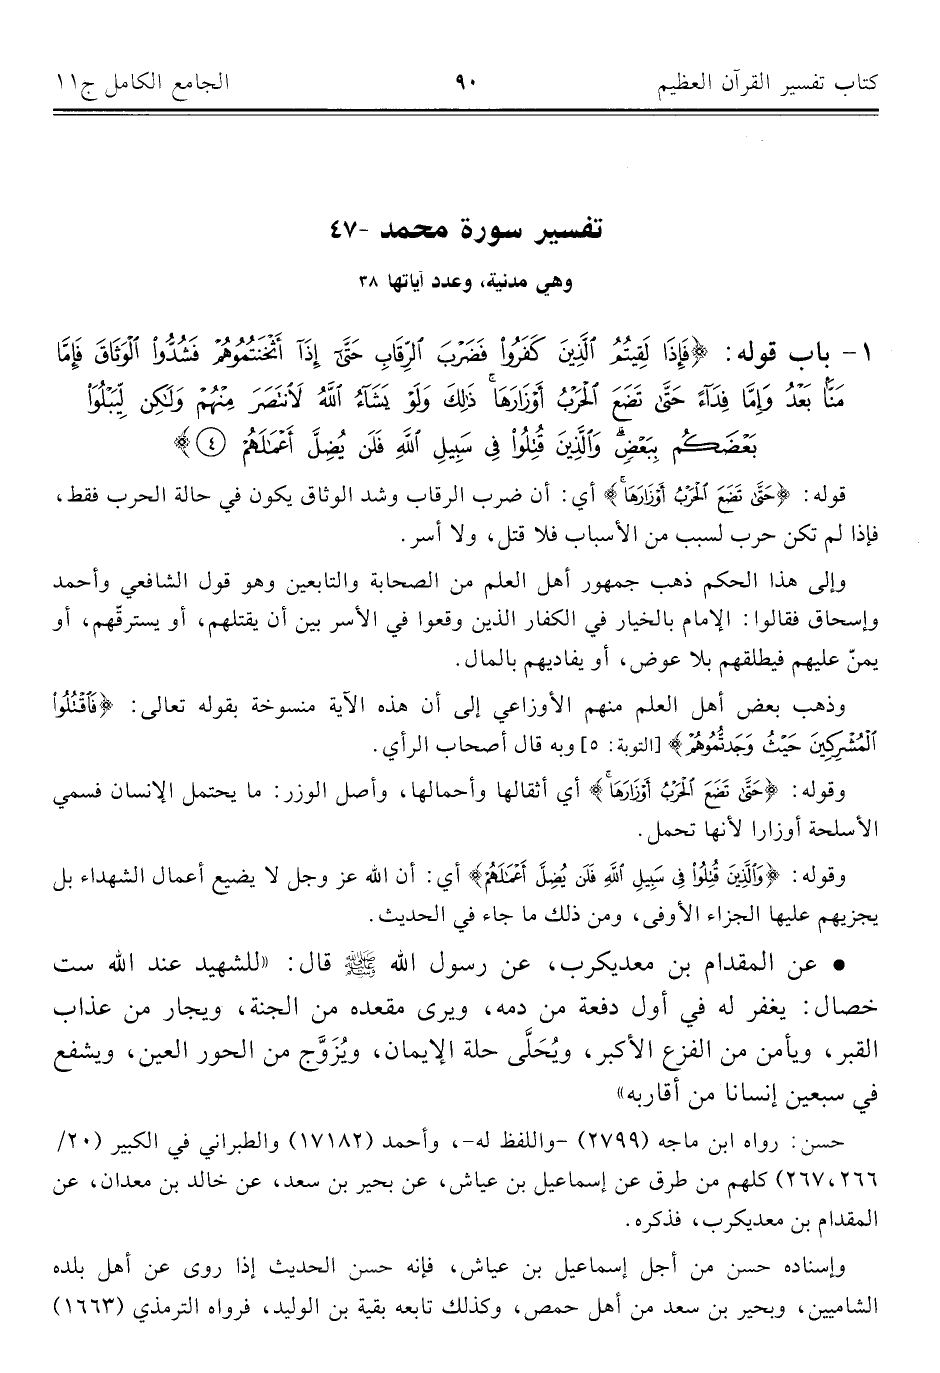 كتاب تفسير القرآن العظيم ٩٠ الجامع الكامل ج١١
تفسير سورة محمد -٤٧
وهي مدنية، وعدد آياتها ٣٨
١- باب قوله: ﴿فَإِذَا لَقِيتُمُ ٱلَّذِينَ كَفَرُوا۟ فَضَرْبَ ٱلرِّقَابِ حَتَّىٰٓ إِذَآ أَثْخَنتُمُوهُمْ فَشُدُّوا۟ ٱلْوَثَاقَ فَإِمَّا
مَنًّۢا بَعْدُ وَإِمَّا فِدَآءً حَتَّىٰ تَضَعَ ٱلْحَرْبُ أَوْزَارَهَا ۚ ذَٰلِكَ وَلَوْ يَشَآءُ ٱللَّهُ لَٱنتَصَرَ مِنْهُمْ وَلَٰكِن لِّيَبْلُوَا۟
بَعْضَكُم بِبَعْضٍ ۗ وَٱلَّذِينَ قُتِلُوا۟ فِى سَبِيلِ ٱللَّهِ فَلَن يُضِلَّ أَعْمَٰلَهُمْ ٤﴾
قوله: ﴿حَتَّىٰ تَضَعَ ٱلْحَرْبُ أَوْزَارَهَا ۚ﴾ أي: أن ضرب الرقاب وشد الوثاق يكون في حالة الحرب فقط،
فإذا لم تكن حرب لسبب من الأسباب فلا قتل، ولا أسر.
وإلى هذا الحكم ذهب جمهور أهل العلم من الصحابة والتابعين وهو قول الشافعي وأحمد
وإسحاق فقالوا: الإمام بالخيار في الكفار الذين وقعوا في الأسر بين أن يقتلهم، أو يسترقّهم، أو
يمنّ عليهم فيطلقهم بلا عوض، أو يفاديهم بالمال.
وذهب بعض أهل العلم منهم الأوزاعي إلى أن هذه الآية منسوخة بقوله تعالى: ﴿فَٱقْتُلُوا۟
ٱلْمُشْرِكِينَ حَيْثُ وَجَدتُّمُوهُمْ﴾ [التوبة: ٥] وبه قال أصحاب الرأي.
وقوله: ﴿حَتَّىٰ تَضَعَ ٱلْحَرْبُ أَوْزَارَهَا ۚ﴾ أي أثقالها وأحمالها، وأصل الوزر: ما يحتمل الإنسان فسمي
الأسلحة أوزارا لأنها تحمل.
وقوله: ﴿وَٱلَّذِينَ قُتِلُوا۟ فِى سَبِيلِ ٱللَّهِ فَلَن يُضِلَّ أَعْمَٰلَهُمْ﴾ أي: أن الله عز وجل لا يضيع أعمال الشهداء بل
يجزيهم عليها الجزاء الأوفى، ومن ذلك ما جاء في الحديث.
• عن المقدام بن معديكرب، عن رسول الله ﷺ قال: «للشهيد عند الله ست
خصال: يغفر له في أول دفعة من دمه، ويرى مقعده من الجنة، ويجار من عذاب
القبر، ويأمن من الفزع الأكبر، ويُحَلَّى حلة الإيمان، ويُزَوَّج من الحور العين، ويشفع
في سبعين إنسانا من أقاربه»
حسن: رواه ابن ماجه (٢٧٩٩) -واللفظ له-، وأحمد (١٧١٨٢) والطبراني في الكبير (٢٠/
٢٦٦،٢٦٧) كلهم من طرق عن إسماعيل بن عياش، عن بحير بن سعد، عن خالد بن معدان، عن
المقدام بن معديكرب، فذكره.
وإسناده حسن من أجل إسماعيل بن عياش، فإنه حسن الحديث إذا روى عن أهل بلده
الشاميين، وبحير بن سعد من أهل حمص، وكذلك تابعه بقية بن الوليد، فرواه الترمذي (١٦٦٣)